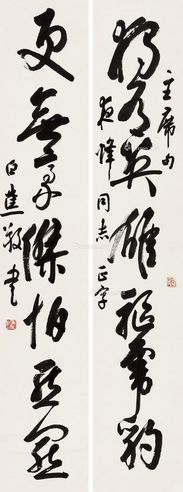 獨有英雄驅虎豹
主席句
夜烽同志正字
更無豪傑怕熊羆
白蕉敬書